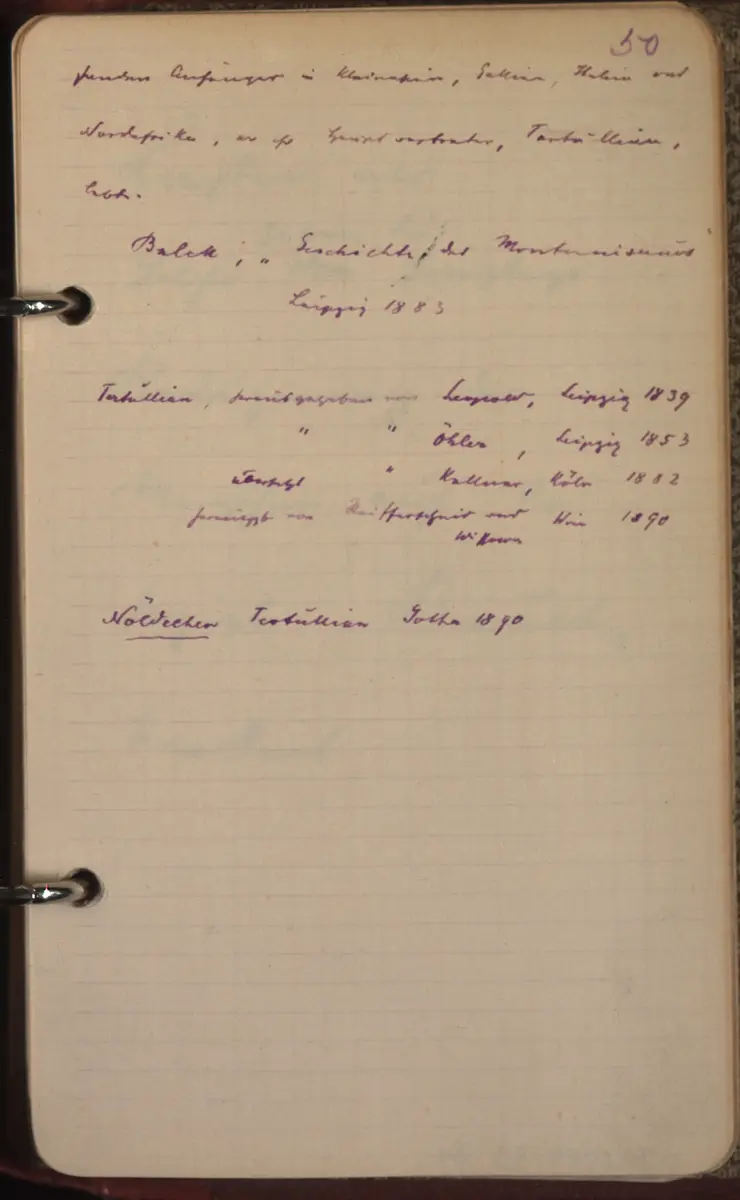 50
Anhänger in Kleinasien, Gallien, Italien und
Nordafrika, wo ihr Hauptvertreter, Tertullian,
lebte.
Belck; „Geschichte des Montanismus
Leipzig 1883
Tertullian, herausgegeben von Leopold, Leipzig 1839
" " Öhler, Leipzig 1853
übersetzt " Kellner, Köln 1882
von Reifferscheid und Wien 1890
Wissowa
Nöldechen Tertullian Gotha 1890